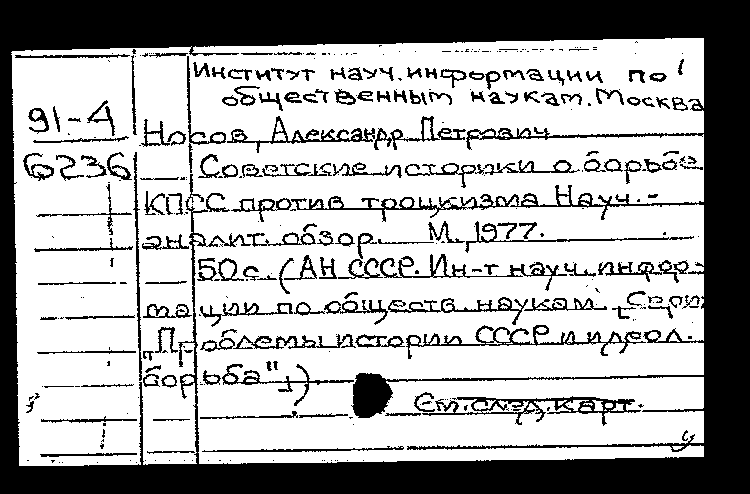 Институт науч. информации по
общественным наукам. Москва
91-4
Носов, Александр Петрович
6236
Советские историки о борьбе
КПСС против троцкизма Науч.-
аналит. обзор. М., 1977.
50с. (АН СССР. Ин-т науч. инфор-
мации по обществ. наукам. [Серия
"Проблемы истории СССР и идеол.
борьба"])
См. след. карт.